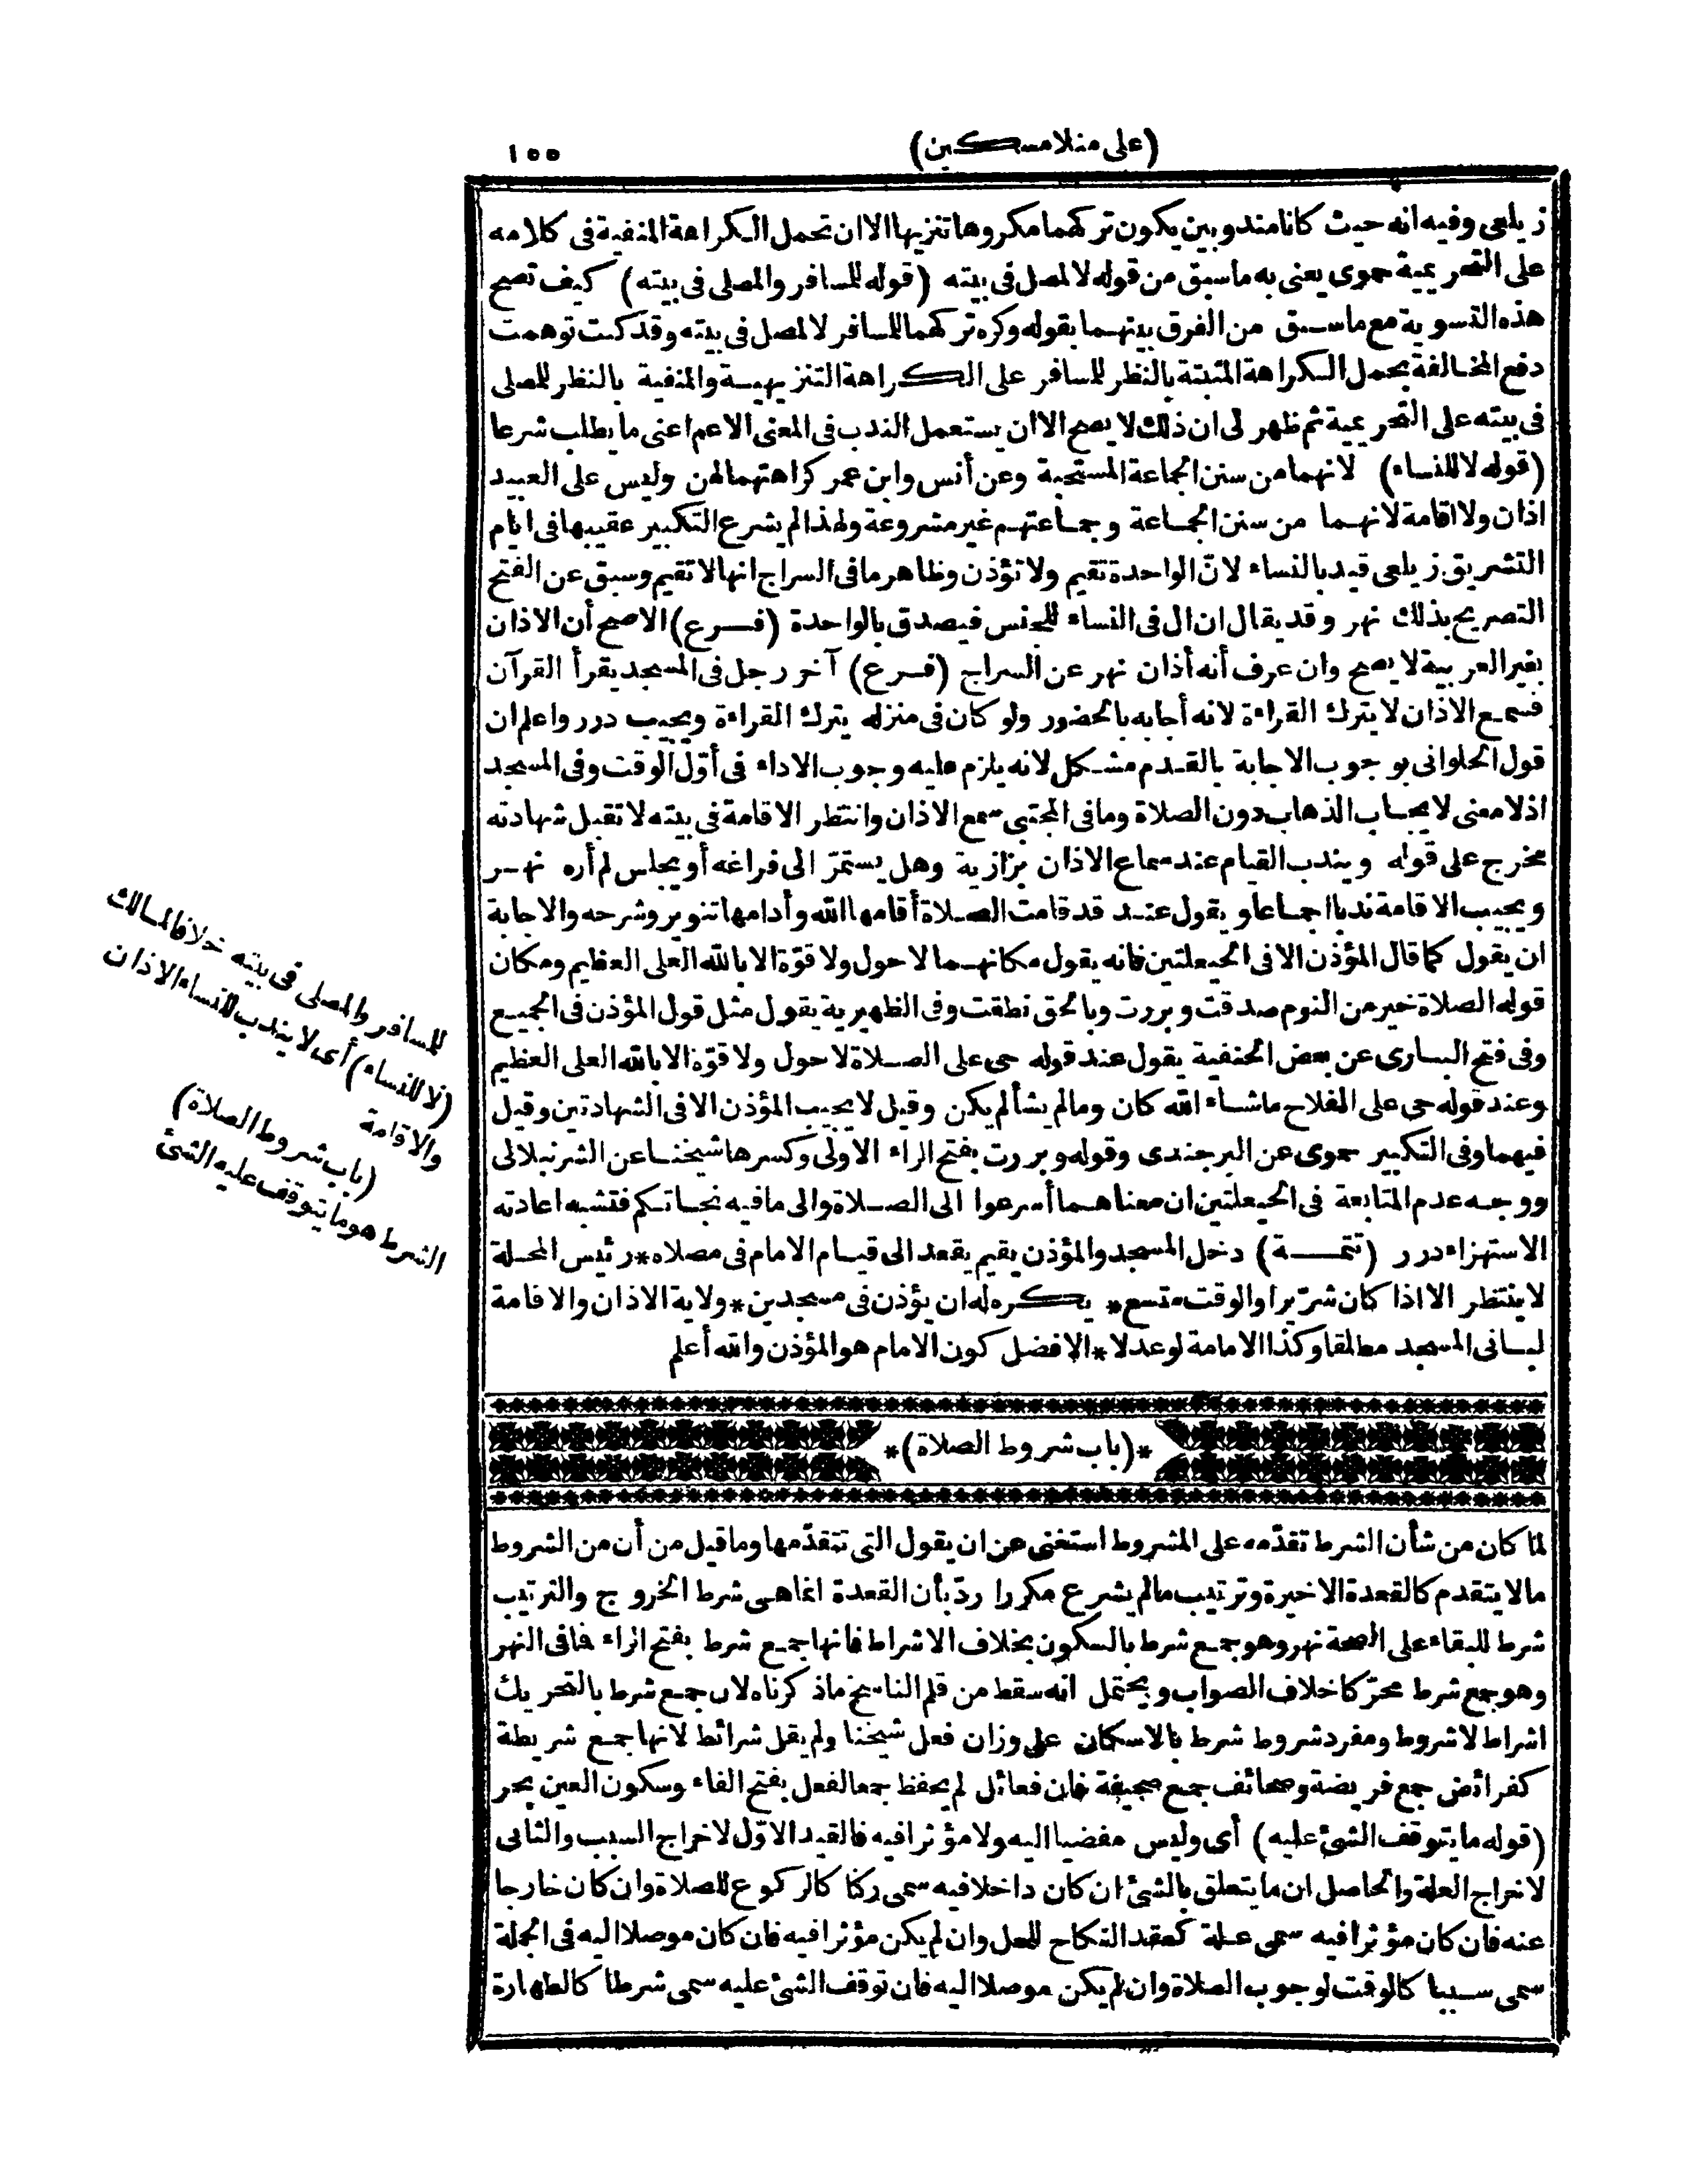 (على منلا مسكين) ١٥٥
زيلعى وفيه انه حيث كانا مندوبين يكون تركهما مكروها تنزيها الا ان تحمل الكراهة المنفية فى كلامه
على التحريمية حموى يعنى به ما سبق من قوله لا لمصل فى بيته (قوله للمسافر والمصلى فى بيته) كيف تصح
هذه التسوية مع ما سبق من الفرق بينهما بقوله وكره تركهما للمسافر لا لمصل فى بيته وقد كنت توهمت
دفع المخالفة بحمل الكراهة المثبتة بالنظر للمسافر على الكراهة التنزيهية والمنفية بالنظر للمصلى
فى بيته على التحريمية ثم ظهر لى ان ذلك لا يصح الا ان يستعمل الندب فى المعنى الاعم اعنى ما يطلب شرعا
(قوله لا للنساء) لانهما من سنن الجماعة المستحبة وعن أنس وابن عمر كراهتهما لهن وليس على العبيد
اذان ولا اقامة لانهما من سنن الجماعة وجماعتهم غير مشروعة ولهذا لم يشرع التكبير عقيبها فى ايام
التشريق زيلعى قيد بالنساء لانّ الواحدة تقيم ولا تؤذن وظاهر ما فى السراج انها لا تقيم وسبق عن الفتح
التصريح بذلك نهر وقد يقال ان ال فى النساء للجنس فيصدق بالواحدة (فـرع) الاصح أن الاذان
بغير العربية لا يصح وان عرف أنه أذان نهر عن السراج (فـرع) آخر رجل فى المسجد يقرأ القرآن
فسمع الاذان لا يترك القراءة لانه أجابه بالحضور ولو كان فى منزله يترك القراءة ويجيب درر واعلم ان
قول الحلوانى بوجوب الاجابة بالقدم مشكل لانه يلزم عليه وجوب الاداء فى أوّل الوقت وفى المسجد
اذ لا معنى لايجاب الذهاب دون الصلاة وما فى المجتبى سمع الاذان وانتظر الاقامة فى بيته لا تقبل شهادته
مخرج على قوله ويندب القيام عند سماع الاذان بزازية وهل يستمرّ الى فراغه أو يجلس لم أره نهر
ويجيب الاقامة ندبا اجماعا ويقول عند قد قامت الصلاة أقامها الله وأدامها تنوير وشرحه والاجابة
ان يقول كما قال المؤذن الا فى الحيعلتين فانه يقول مكانهما لا حول ولا قوّة الا بالله العلى العظيم ومكان
قوله الصلاة خير من النوم صدقت وبررت وبالحق نطقت وفى الظهيرية يقول مثل قول المؤذن فى الجميع
وفى فتح البارى عن بعض الحنفية يقول عند قوله حى على الصلاة لا حول ولا قوّة الا بالله العلى العظيم
وعند قوله حى على الفلاح ما شاء الله كان وما لم يشأ لم يكن وقيل لا يجيب المؤذن الا فى الشهادتين وقيل
فيهما وفى التكبير حموى عن البرجندى وقوله وبررت بفتح الراء الاولى وكسرها شيخنا عن الشرنبلالى
ووجه عدم المتابعة فى الحيعلتين ان معناهما أسرعوا الى الصلاة والى ما فيه نجاتكم فتشبه اعادته
الاستهزاء درر (تتمـة) دخل المسجد والمؤذن يقيم يقعد الى قيام الامام فى مصلاه * رئيس المحلة
لا ينتظر الا اذا كان شرّيرا والوقت متسع * يكره له ان يؤذن فى مسجدين * ولاية الاذان والاقامة
لبانى المسجد مطلقا وكذا الامامة لو عدلا * الافضل كون الامام هو المؤذن والله أعلم
*(باب شروط الصلاة)*
لما كان من شأن الشرط تقدّمه على المشروط استغنى عن ان يقول التى تتقدّمها وما قيل من أن من الشروط
ما لا يتقدم كالقعدة الاخيرة وترتيب ما لم يشرع مكررا ردّ بأن القعدة انما هى شرط الخروج والترتيب
شرط للبقاء على الصحة نهر وهو جمع شرط بالسكون بخلاف الاشراط فانها جمع شرط بفتح الراء فما فى النهر
وهو جمع شرط محرّكا خلاف الصواب ويحتمل انه سقط من قلم الناسخ ما ذكرناه لان جمع شرط بالتحريك
اشراط لا شروط ومفرد شروط شرط بالاسكان على وزان فعل شيخنا ولم يقل شرائط لانها جمع شريطة
كفرائض جمع فريضة وصحائف جمع صحيفة فان فعائل لم يحفظ جمعا لفعل بفتح الفاء وسكون العين بحر
(قوله ما يتوقف الشئ عليه) أى وليس مفضيا اليه ولا مؤثرا فيه فالقيد الاوّل لاخراج السبب والثانى
لاخراج العلة والحاصل ان ما يتعلق بالشئ ان كان داخلا فيه سمى ركنا كالركوع للصلاة وان كان خارجا
عنه فان كان مؤثرا فيه سمى علة كعقد النكاح للحل وان لم يكن مؤثرا فيه فان كان موصلا اليه فى الجملة
سمى سببا كالوقت لوجوب الصلاة وان لم يكن موصلا اليه فان توقف الشئ عليه سمى شرطا كالطهارة
للمسافر والمصلى فى بيته خلافا لمالك
(لا للنساء) أى لا يندب للنساء الاذان
والاقامة
(باب شروط الصلاة)
الشرط هو ما يتوقف عليه الشئ